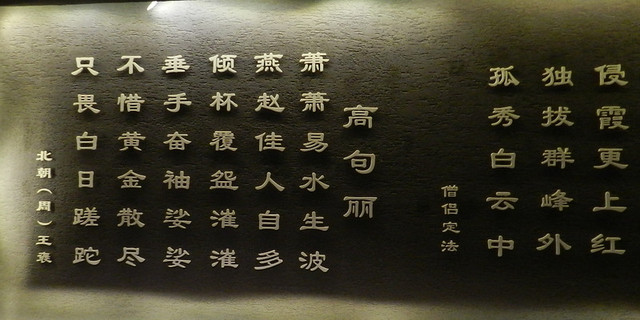 侵霞更上红
独拔群峰外
孤秀白云中
僧侣定法
高句丽
萧萧易水生波
燕赵佳人自多
倾杯覆盌漼漼
垂手奋袖娑娑
不惜黄金散尽
只畏白日蹉跎
北朝（周）王褒